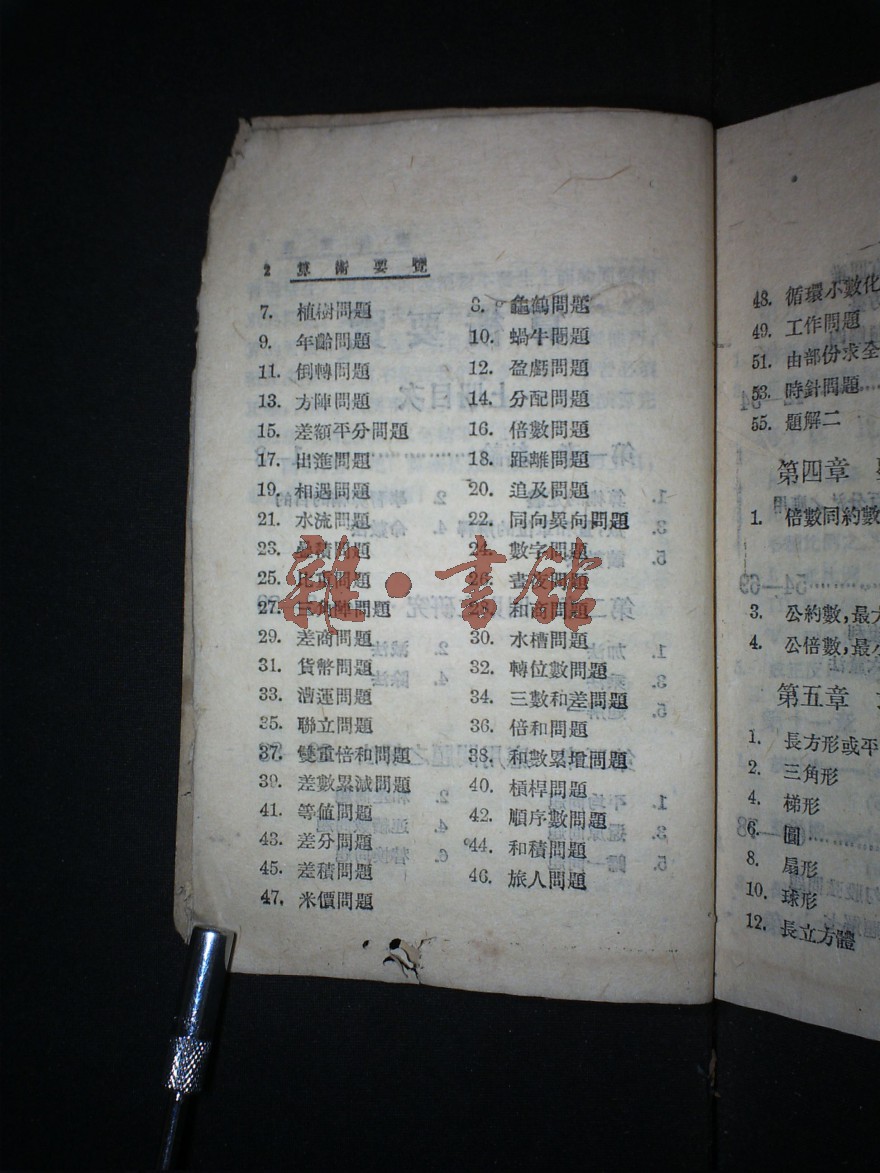 2 算術要覽
7. 植樹問題 8. 龜鶴問題
9. 年齡問題 10. 蝸牛問題
11. 倒轉問題 12. 盈虧問題
13. 方陣問題 14. 分配問題
15. 差額平分問題 16. 倍數問題
17. 出進問題 18. 距離問題
19. 相遇問題 20. 追及問題
21. 水流問題 22. 同向異向問題
23. 積問題 24. 數字問題
25. 比重問題 26. 晝夜問題
27. 三角陣問題 28. 和商問題
29. 差商問題 30. 水槽問題
31. 貨幣問題 32. 轉位數問題
33. 漕運問題 34. 三數和差問題
35. 聯立問題 36. 倍和問題
37. 雙重倍和問題 38. 和數累增問題
39. 差數累減問題 40. 槓桿問題
41. 等值問題 42. 順序數問題
43. 差分問題 44. 和積問題
45. 差積問題 46. 旅人問題
47. 米價問題
雜·書館
48. 循環小數化
49. 工作問題
51. 由部份求全
53. 時針問題
55. 題解二
第四章
1. 倍數同約數
3. 公約數,最大
4. 公倍數,最小
第五章
1. 長方形或平
2. 三角形
4. 梯形
6. 圓
8. 扇形
10. 球形
12. 長立方體